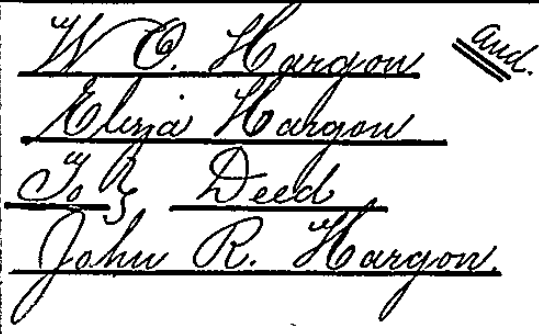 W O. Hargon and.
Eliza Hargon
To } Deed
John R. Hargon.